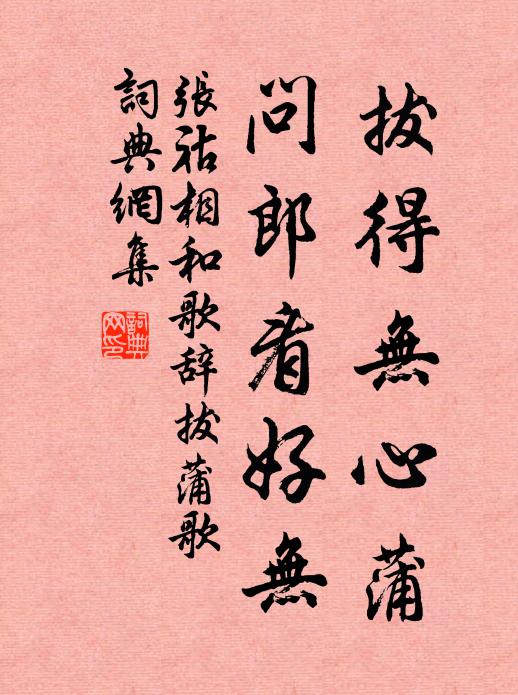 拔得無心蒲
問郎看好無
張祜相和歌辞拔蒲歌
詞典網集
詞典
網印